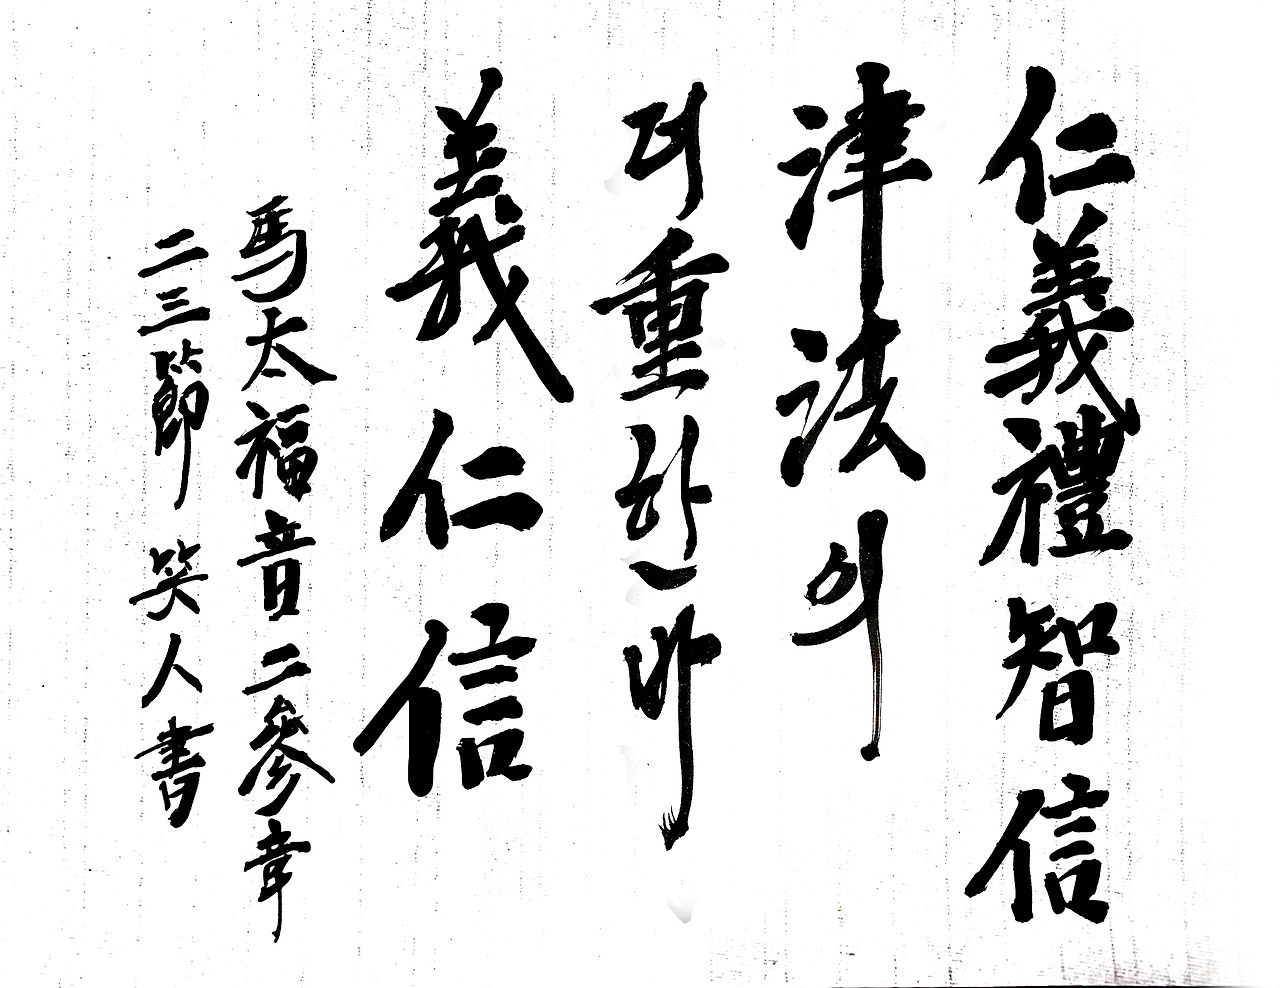 仁義禮智信
津法의
더重한바
義仁信
馬太福音二參章
二三節 笑人書